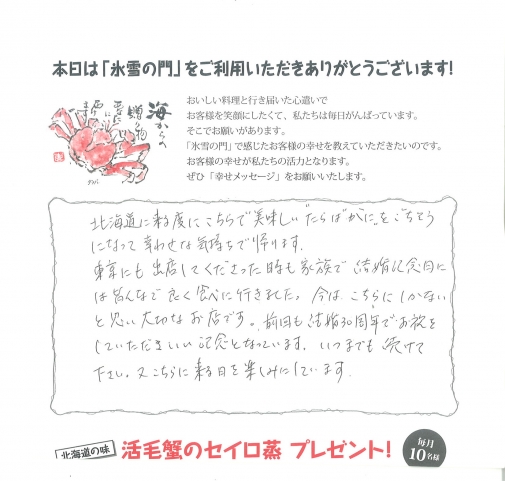 本日は「氷雪の門」をご利用いただきありがとうございます!
海からの
贈り物
おいしい料理と行き届いた心遣いで
お客様を笑顔にしたくて、私たちは毎日がんばっています。
そこでお願いがあります。
「氷雪の門」で感じたお客様の幸せを教えていただきたいのです。
お客様の幸せが私たちの活力となります。
ぜひ「幸せメッセージ」をお願いいたします。
北海道に来る度にこちらで美味しい"たらばがに"をごちそう
になって幸わせな気持ちで帰ります。
東京にも出店してくださった時も家族で結婚記念日に
は皆んなで良く食べに行きました。今はこちらにしかない
と思い大切なお店です。前回も結婚30周年でお祝を
していただきいい記念となっています。いつまでも続けて
下さい。又こちらに来る日を楽しみにしています。
北海道の味
活毛蟹のセイロ蒸 プレゼント!
毎月
10名様